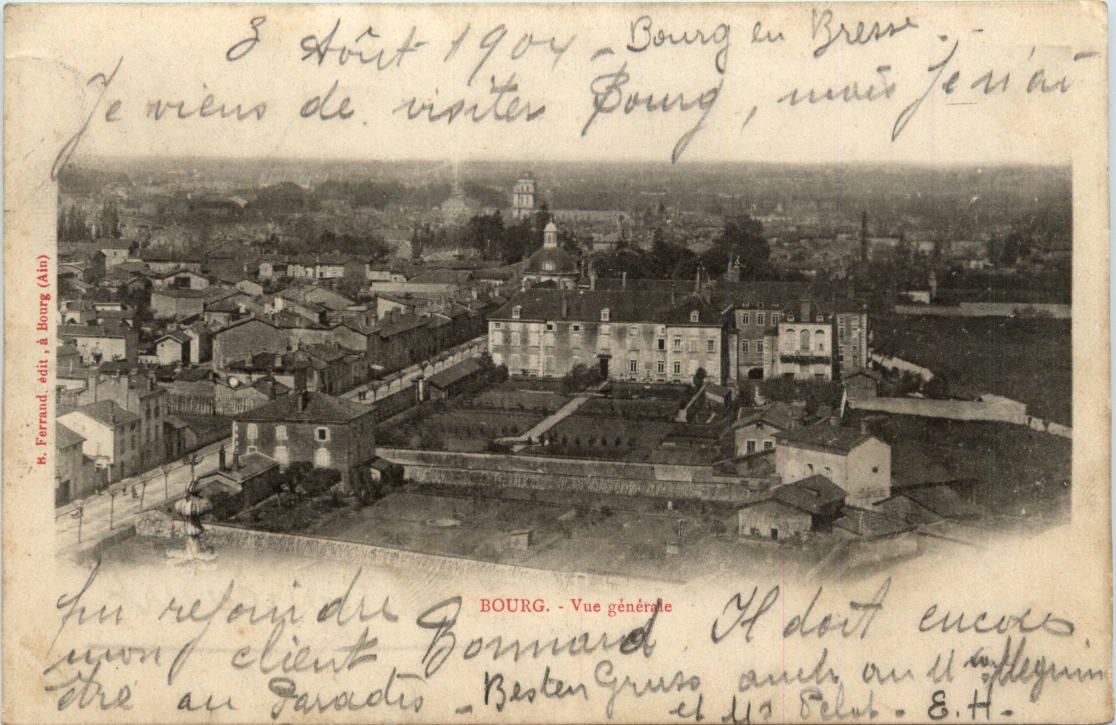 3 Août 1904 - Bourg en Bresse. -
Je viens de visiter Bourg, mais Je n'ai
B. Ferrand, édit, à Bourg (Ain)
BOURG. - Vue générale
pu rejoindre Bonnard. Il doit encore
mon client
être au Paradis - Besten Gruss auch an
et - E.H.-